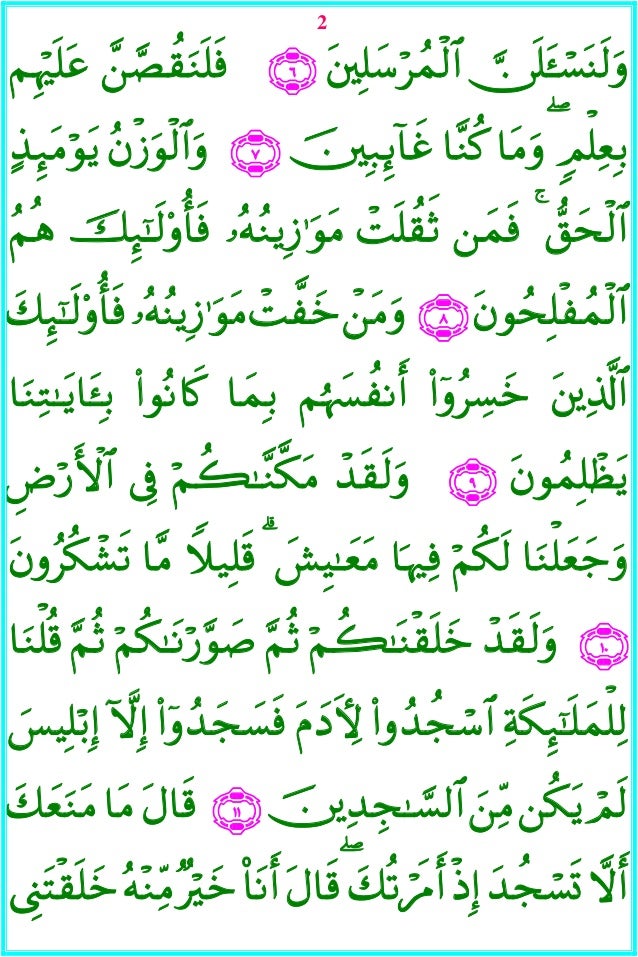 2
وَلَنَسْـَٔلَنَّ ٱلْمُرْسَلِينَ ٦ فَلَنَقُصَّنَّ عَلَيْهِم
بِعِلْمٍ ۖ وَمَا كُنَّا غَآئِبِينَ ٧ وَٱلْوَزْنُ يَوْمَئِذٍ
ٱلْحَقُّ ۚ فَمَن ثَقُلَتْ مَوَٰزِينُهُۥ فَأُو۟لَٰٓئِكَ هُمُ
ٱلْمُفْلِحُونَ ٨ وَمَنْ خَفَّتْ مَوَٰزِينُهُۥ فَأُو۟لَٰٓئِكَ
ٱلَّذِينَ خَسِرُوٓا۟ أَنفُسَهُم بِمَا كَانُوا۟ بِـَٔايَٰتِنَا
يَظْلِمُونَ ٩ وَلَقَدْ مَكَّنَّٰكُمْ فِى ٱلْأَرْضِ
وَجَعَلْنَا لَكُمْ فِيهَا مَعَٰيِشَ ۗ قَلِيلًا مَّا تَشْكُرُونَ
١٠ وَلَقَدْ خَلَقْنَٰكُمْ ثُمَّ صَوَّرْنَٰكُمْ ثُمَّ قُلْنَا
لِلْمَلَٰٓئِكَةِ ٱسْجُدُوا۟ لِـَٔادَمَ فَسَجَدُوٓا۟ إِلَّآ إِبْلِيسَ
لَمْ يَكُن مِّنَ ٱلسَّٰجِدِينَ ١١ قَالَ مَا مَنَعَكَ
أَلَّا تَسْجُدَ إِذْ أَمَرْتُكَ ۖ قَالَ أَنَا۠ خَيْرٌ مِّنْهُ خَلَقْتَنِى